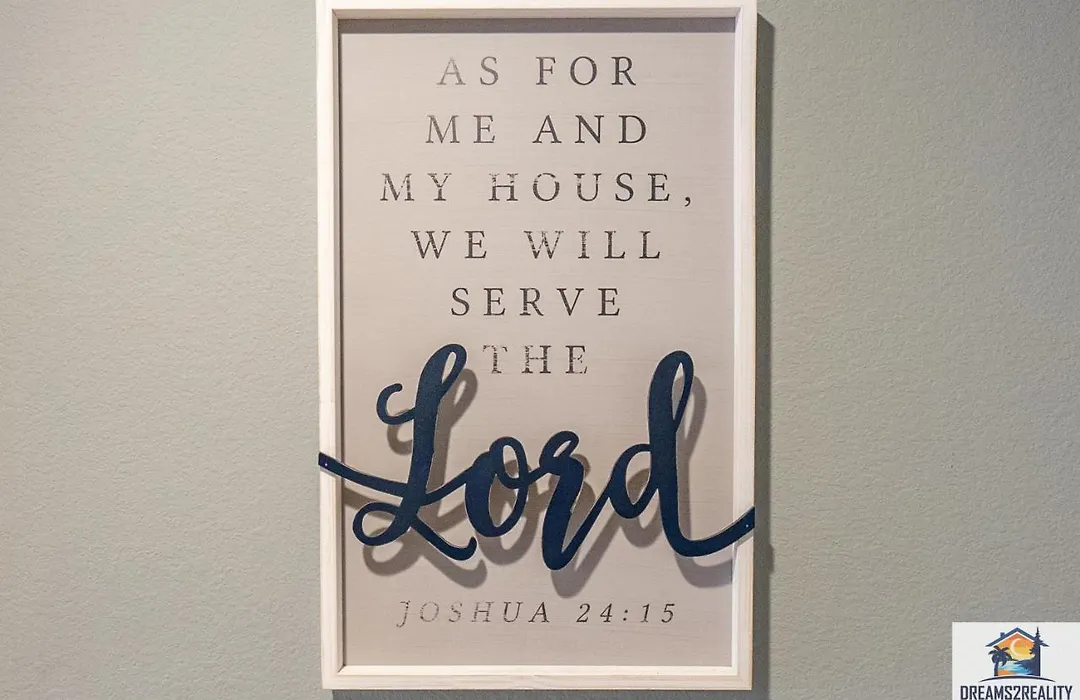 AS FOR
ME AND
MY HOUSE,
WE WILL
SERVE
THE
Lord
JOSHUA 24:15
DREAMS2REALITY